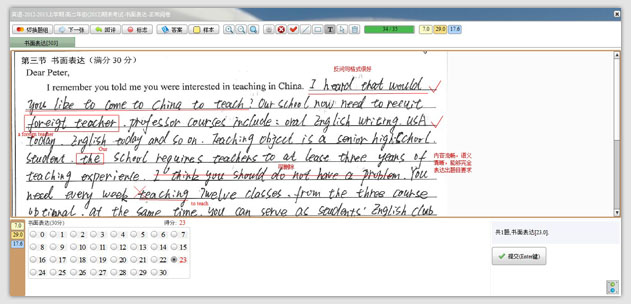 英语-2012-2013上学期-高二年级(2012)期末考试-书面表达-正常阅卷
切换题组 下一张 回评 标志 答案 样本 34 / 35 7.0 29.0 17.6
书面表达[303]
第三节 书面表达（满分30分）
反问句格式很好
Dear Peter,
I remember you told me you were interested in teaching in China. I heard that would
you like to come to China to teach? Our school now need to recruit
foreigt teacher. professor courses include: oral English writing. USA
a foreign teacher
today. English today and so on. Teaching object is a senior highschool
Our
student. the school requires teachers to at lease three years of
teaching experience. I think you should do not have a problem. You
need every week teaching Twelve classes. from the three course
to teach
optional. at the same time. you can serve as students' English club
内容流畅，语义
表达出题目要求
7.0
29.0
17.6
书面表达(30分) 得分: 23
0 1 2 3 4 5 6 7
8 9 10 11 12 13 14 15
16 17 18 19 20 21 22 23
24 25 26 27 28 29 30
共1题,书面表达[23.0].
提交(Enter键)